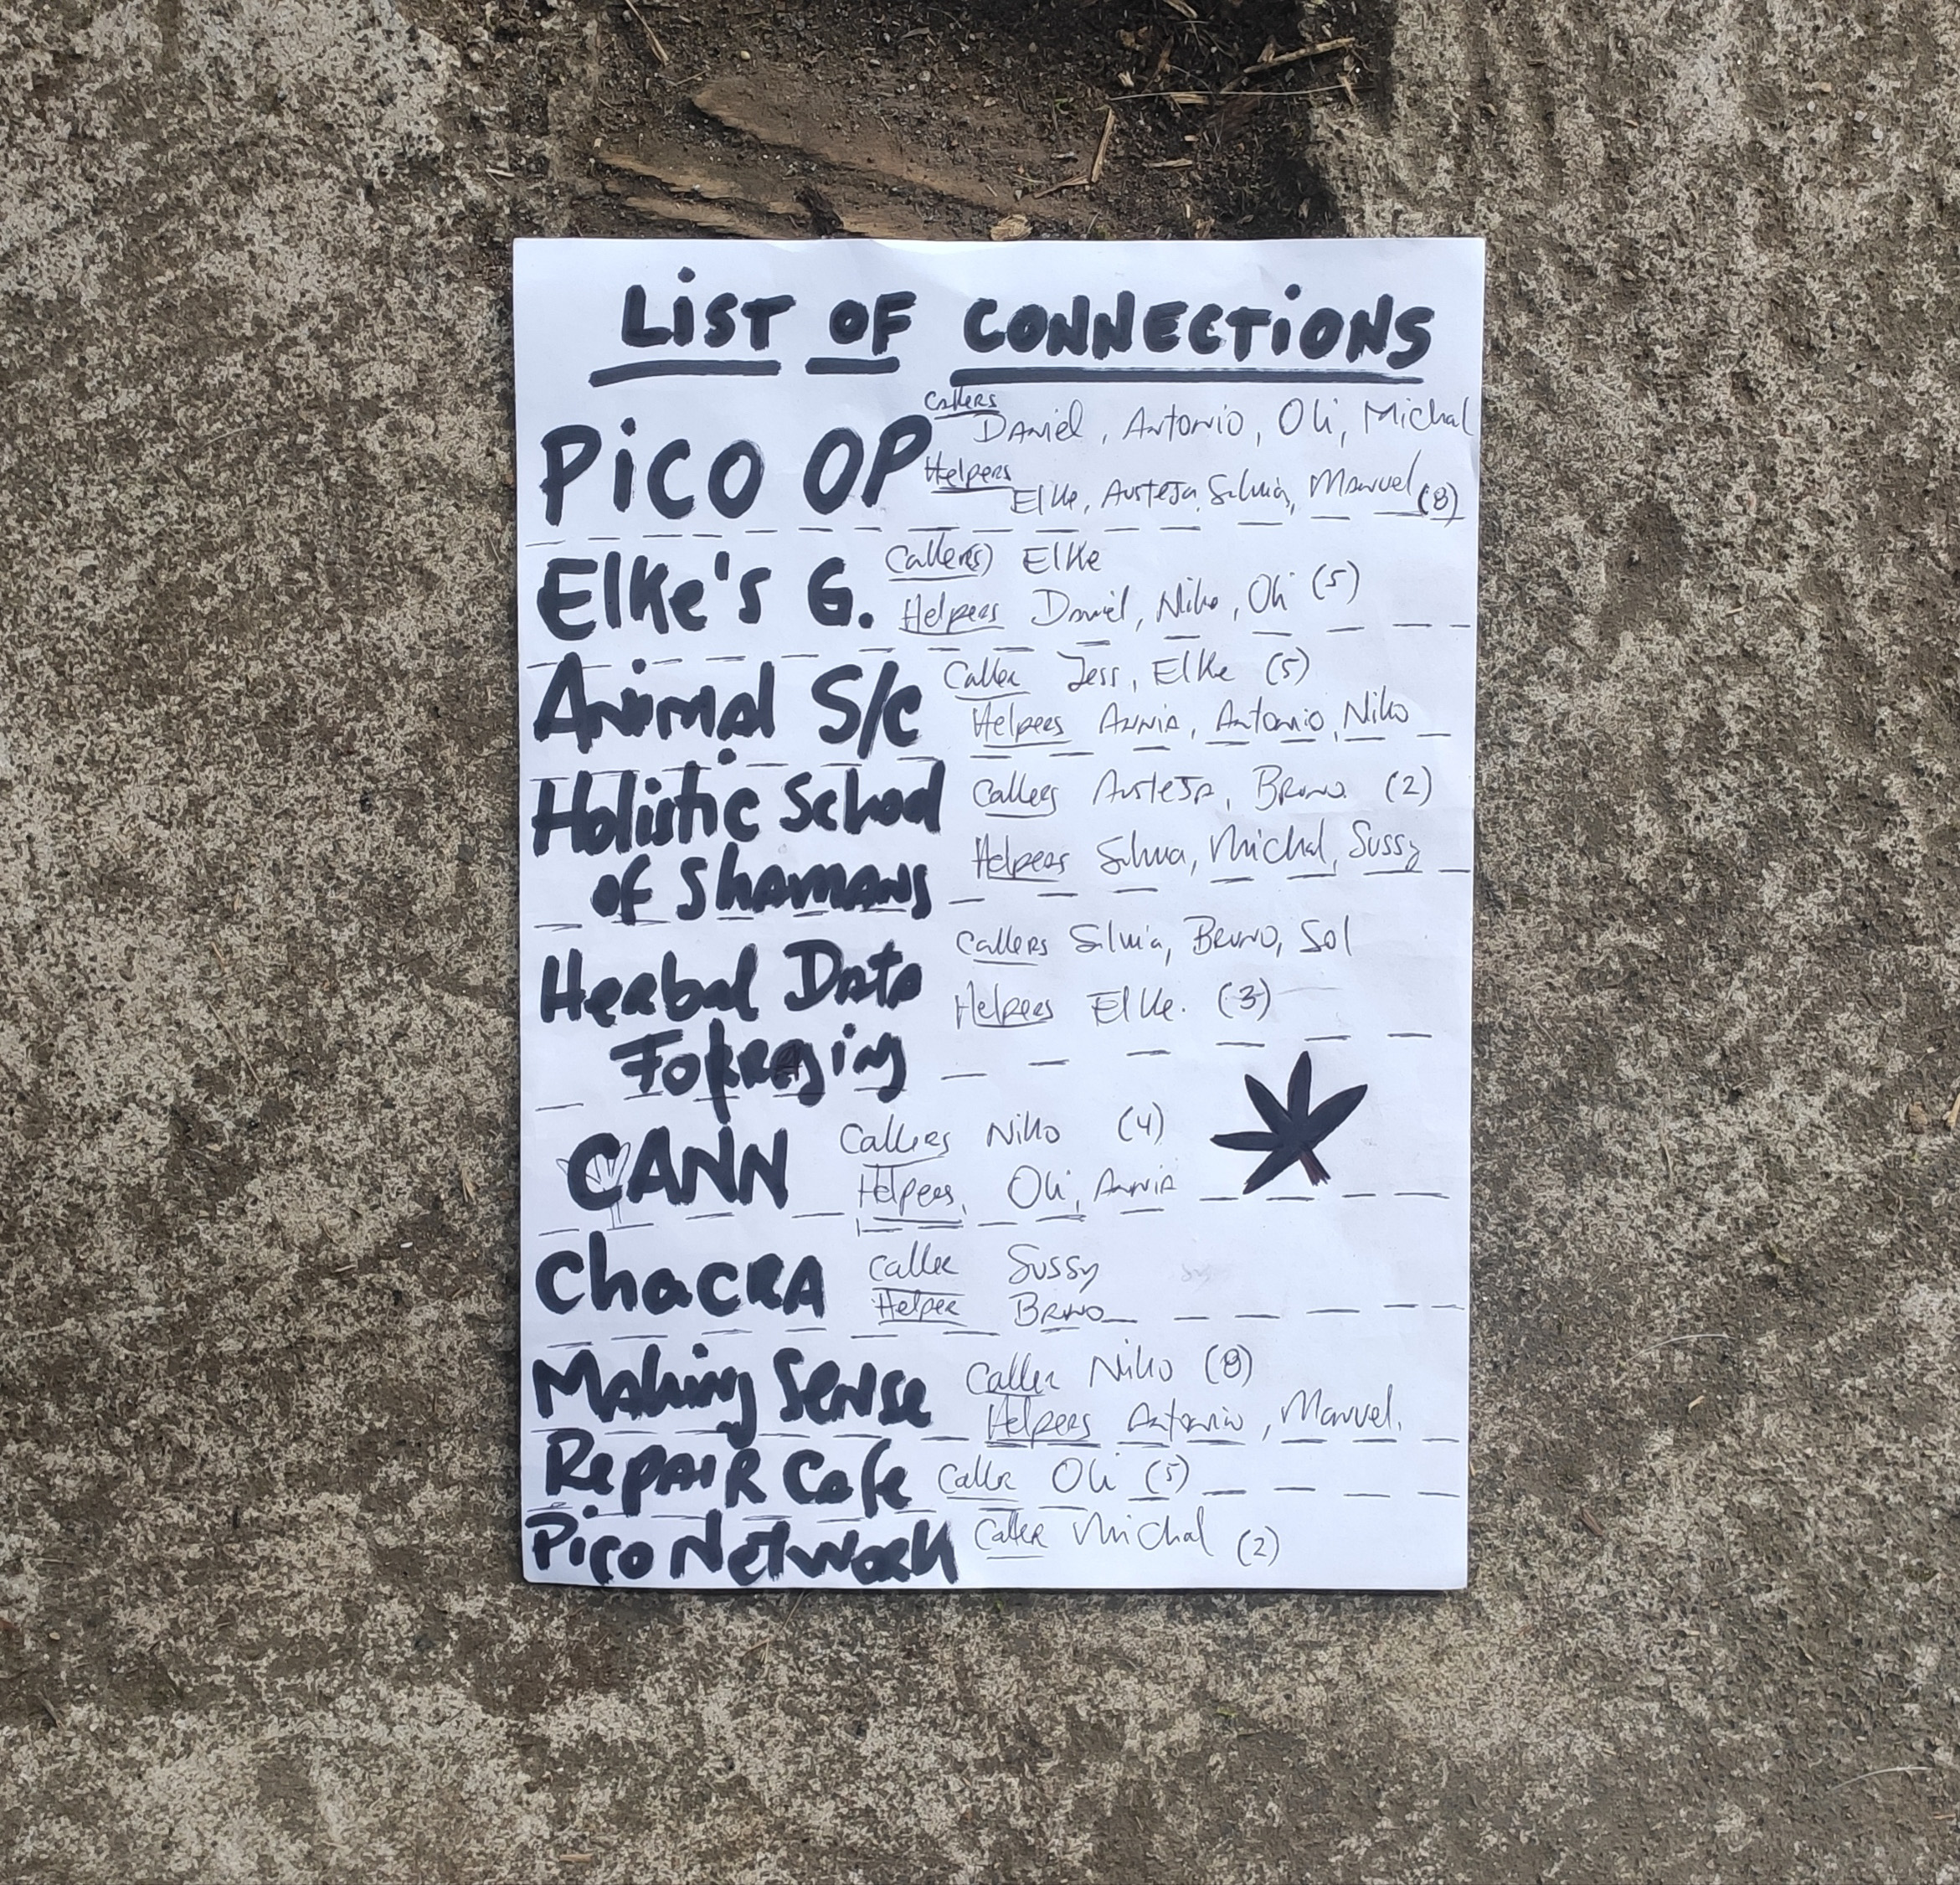 LiST OF CONNECTiONS
Callers
Daniel, Antonio, Oli, Michal
PiCO OP
Helpers
Elke, Austeja, Silvia, Manuel (8)
Elke's G. Caller(s) Elke
Helpers Daniel, Niko, Oli (5)
Animal S/c Caller Jess, Elke (5)
Helpers Annia, Antonio, Niko
Holistic School Callers Austeja, Bruno (2)
of Shamans Helpers Silvia, Michal, Sussy
Herbal Data Callers Silvia, Bruno, Sol
Foraging Helpers Elke. (3)
CANN Callers Niko (4)
Helpers, Oli, Annia
ChacRA Caller Sussy
Helper Bruno
Making Sense Caller Niko (8)
Helpers Antonio, Manuel.
RepAiR Cafe Caller Oli (5)
Pico Network Caller Michal (2)